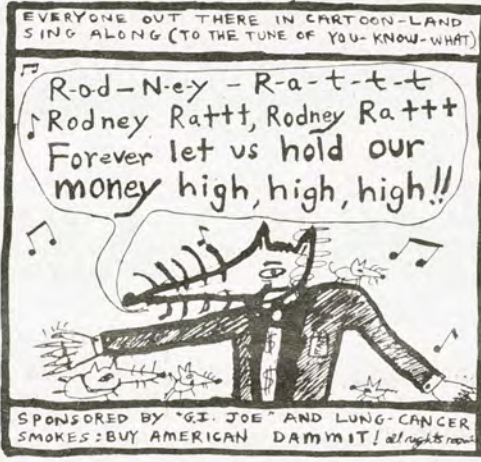 EVERYONE OUT THERE IN CARTOON-LAND
SING ALONG (TO THE TUNE OF YOU-KNOW-WHAT)
R-o-d-N-e-y - R-a-t-t-t
Rodney Rattt, Rodney Rattt
Forever let us hold our
money high, high, high!!
$
$
SPONSORED BY "G.I. JOE" AND LUNG-CANCER
SMOKES: BUY AMERICAN DAMMIT! all rights